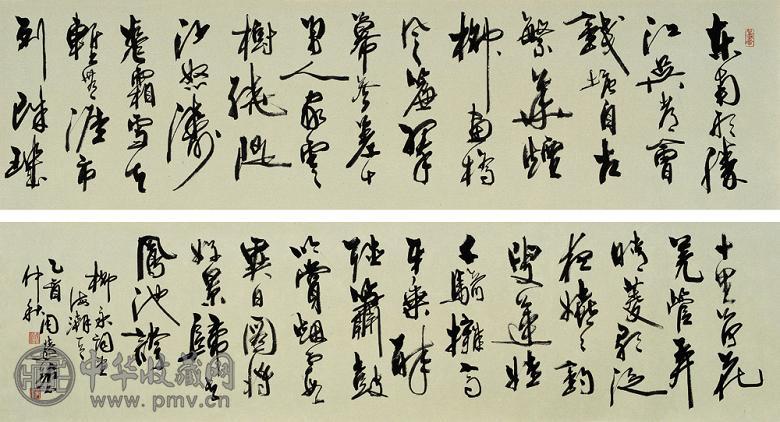 東南形勝
江吳都會
錢塘自古
繁華煙
柳畫橋
風簾翠
幕參差十
萬人家雲
樹繞堤
沙怒濤
卷霜雪天
塹無涯市
列珠璣
十里荷花
羌管弄
晴菱歌泛
夜嬉嬉釣
叟蓮娃
千騎擁高
牙乘醉
聽簫鼓
吟賞煙霞
異日圖將
好景歸去
鳳池誇
柳永詞
海潮
乙酉
仲秋
中华收藏网
www.pmv.cn